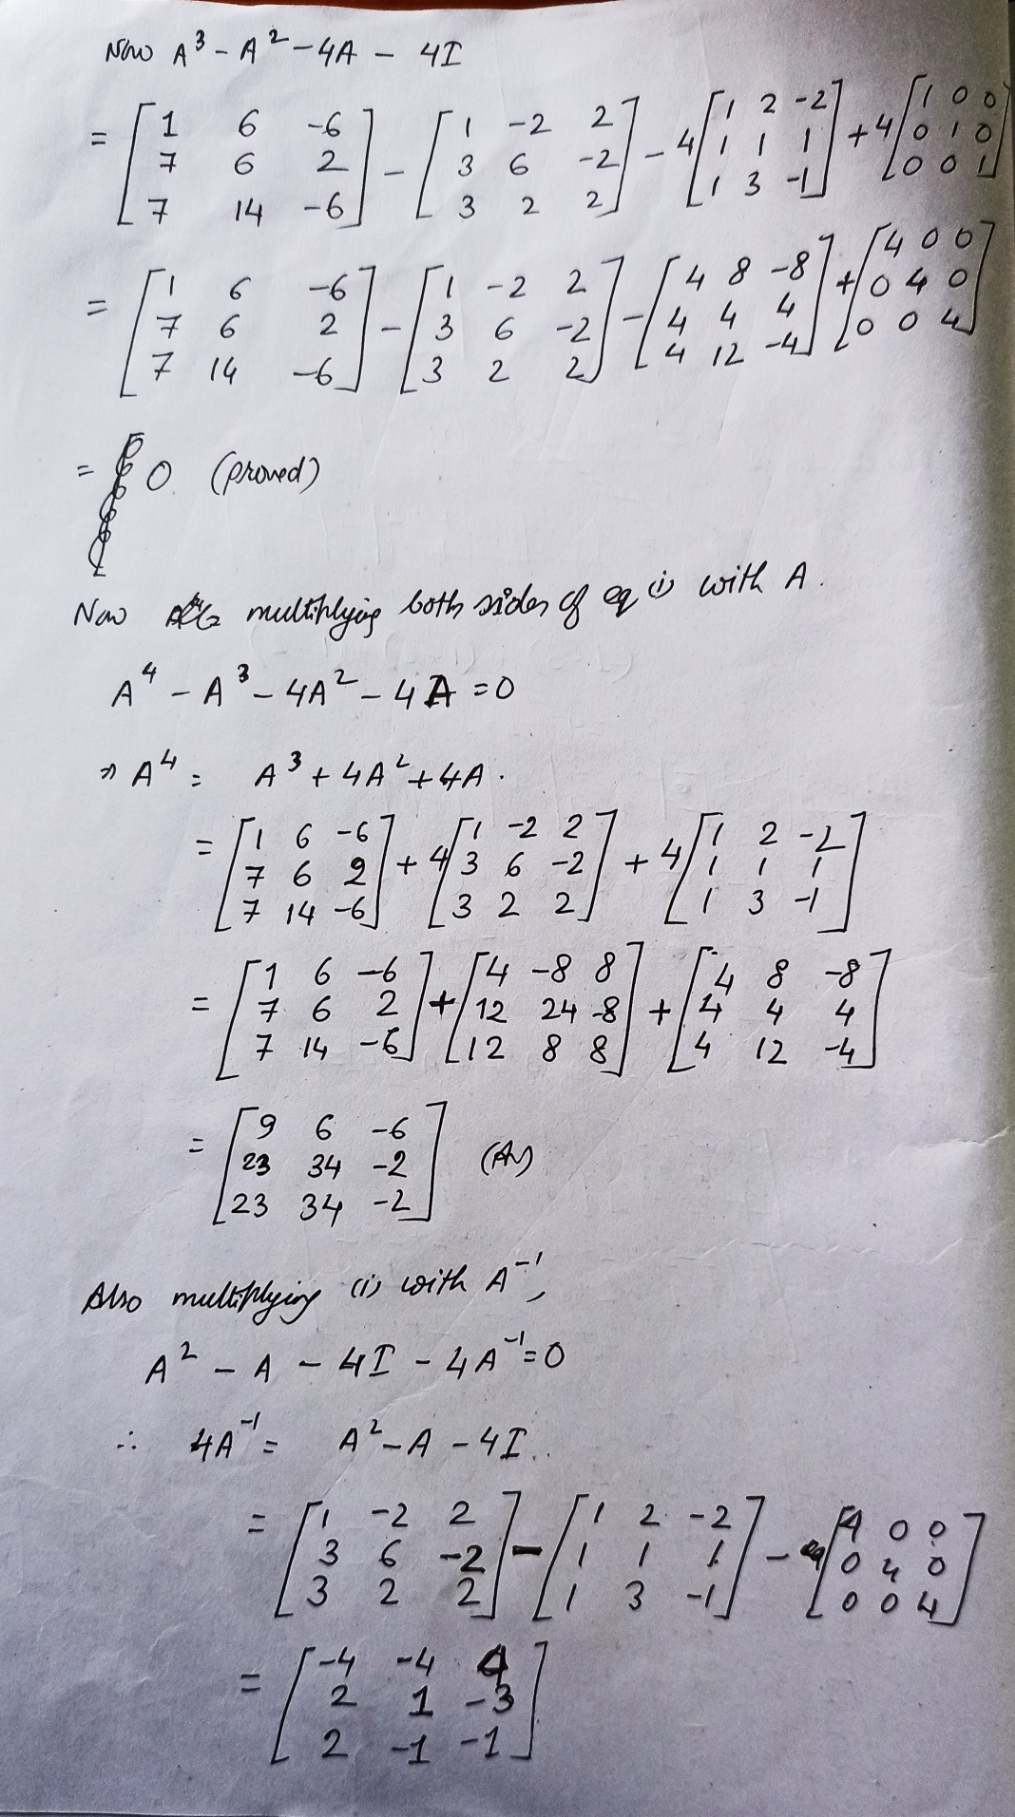 Now A³ - A² - 4A - 4I
= [1 6 -6
7 6 2
7 14 -6] - [1 -2 2
3 6 -2
3 2 2] - 4[1 2 -2
1 1 1
1 3 -1] + 4[1 0 0
0 1 0
0 0 1]
= [1 6 -6
7 6 2
7 14 -6] - [1 -2 2
3 6 -2
3 2 2] - [4 8 -8
4 4 4
4 12 -4] + [4 0 0
0 4 0
0 0 4]
= 0. (proved)
Now multiplying both sides of eq (i) with A.
A⁴ - A³ - 4A² - 4A = 0
⇒ A⁴ = A³ + 4A² + 4A.
= [1 6 -6
7 6 2
7 14 -6] + 4[1 -2 2
3 6 -2
3 2 2] + 4[1 2 -2
1 1 1
1 3 -1]
= [1 6 -6
7 6 2
7 14 -6] + [4 -8 8
12 24 -8
12 8 8] + [4 8 -8
4 4 4
4 12 -4]
= [9 6 -6
23 34 -2
23 34 -2] (As)
Also multiplying (i) with A⁻¹,
A² - A - 4I - 4A⁻¹ = 0
∴ 4A⁻¹ = A² - A - 4I.
= [1 -2 2
3 6 -2
3 2 2] - [1 2 -2
1 1 1
1 3 -1] - [4 0 0
0 4 0
0 0 4]
= [-4 -4 4
2 1 -3
2 -1 -1]